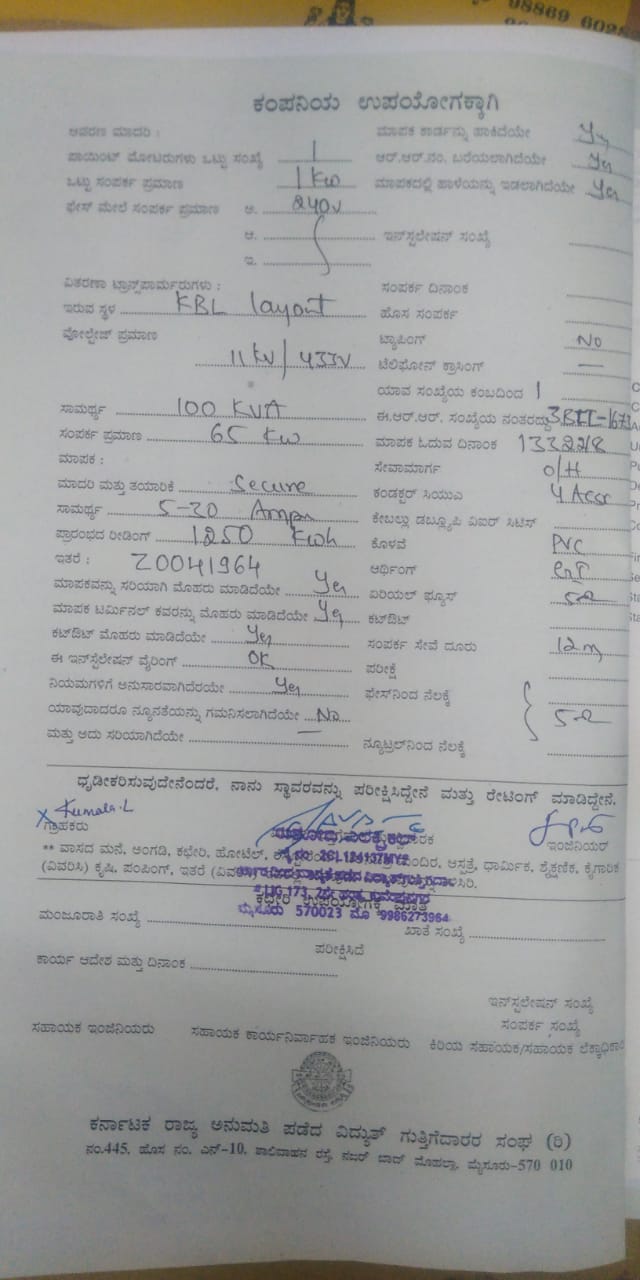 98869 6028
ಕಂಪನಿಯ ಉಪಯೋಗಕ್ಕಾಗಿ
ಆವರಣ ಮಾದರಿ :
ಮಾಪಕ ಕಾರ್ಡನ್ನು ಹಾಕಿದೆಯೇ Yes
ಪಾಯಿಂಟ್ ಮೋಟರುಗಳು ಒಟ್ಟು ಸಂಖ್ಯೆ 1
ಆರ್.ಆರ್.ನಂ. ಬರೆಯಲಾಗಿದೆಯೇ Yes
ಒಟ್ಟು ಸಂಪರ್ಕ ಪ್ರಮಾಣ 1 Kw
ಮಾಪಕದಲ್ಲಿ ಹಾಳೆಯನ್ನು ಇಡಲಾಗಿದೆಯೇ Yes
ಫೇಸ್ ಮೇಲೆ ಸಂಪರ್ಕ ಪ್ರಮಾಣ ಅ. 240v
ಆ.
ಇನ್‌ಸ್ಟಲೇಷನ್ ಸಂಖ್ಯೆ
ಇ.
ವಿತರಣಾ ಟ್ರಾನ್ಸ್‌ಪಾರ್ಮರುಗಳು :
ಸಂಪರ್ಕ ದಿನಾಂಕ
ಇರುವ ಸ್ಥಳ KBL layout
ಹೊಸ ಸಂಪರ್ಕ
ವೋಲ್ಟೇಜ್ ಪ್ರಮಾಣ
ಟ್ಯಾಪಿಂಗ್ No
11 KV / 433V
ಟೆಲಿಫೋನ್ ಕ್ರಾಸಿಂಗ್ —
ಯಾವ ಸಂಖ್ಯೆಯ ಕಂಬದಿಂದ 1
ಸಾಮರ್ಥ್ಯ 100 KVA
ಈ.ಆರ್.ಆರ್. ಸಂಖ್ಯೆಯ ನಂತರದ್ದು
ಸಂಪರ್ಕ ಪ್ರಮಾಣ 65 Kw
ಮಾಪಕ ಓದುವ ದಿನಾಂಕ
ಮಾಪಕ :
ಸೇವಾಮಾರ್ಗ O/H
ಮಾದರಿ ಮತ್ತು ತಯಾರಿಕೆ Secure
ಕಂಡಕ್ಟರ್ ಸಿಯುಎ
ಸಾಮರ್ಥ್ಯ 5-30 Amps
ಕೇಬಲ್ಲು ಡಬ್ಲ್ಯೂಪಿ ವಿಐರ್ ಸಿಟಿಸ್
ಪ್ರಾರಂಭದ ರೀಡಿಂಗ್ 1250 Kwh
ಕೊಳವೆ PVC
ಇತರೆ : Z0041964
ಆರ್ಥಿಂಗ್
ಮಾಪಕವನ್ನು ಸರಿಯಾಗಿ ಮೊಹರು ಮಾಡಿದೆಯೇ Yes
ಏರಿಯಲ್ ಫ್ಯೂಸ್
ಮಾಪಕ ಟರ್ಮಿನಲ್ ಕವರನ್ನು ಮೊಹರು ಮಾಡಿದೆಯೇ Yes
ಕಟ್‌ಔಟ್
ಕಟ್‌ಔಟ್ ಮೊಹರು ಮಾಡಿದೆಯೇ Yes
ಸಂಪರ್ಕ ಸೇವೆ ದೂರು 12 m
ಈ ಇನ್‌ಸ್ಟಲೇಷನ್ ವೈರಿಂಗ್ OK
ಪರೀಕ್ಷೆ
ನಿಯಮಗಳಿಗೆ ಅನುಸಾರವಾಗಿದೆರಯೇ Yes
ಫೇಸ್‌ನಿಂದ ನೆಲಕ್ಕೆ
ಯಾವುದಾದರೂ ನ್ಯೂನತೆಯನ್ನು ಗಮನಿಸಲಾಗಿದೆಯೇ No
ಮತ್ತು ಅದು ಸರಿಯಾಗಿದೆಯೇ —
ನ್ಯೂಟ್ರಲ್‌ನಿಂದ ನೆಲಕ್ಕೆ
ಧೃಡೀಕರಿಸುವುದೇನೆಂದರೆ, ನಾನು ಸ್ಥಾವರವನ್ನು ಪರೀಕ್ಷಿಸಿದ್ದೇನೆ ಮತ್ತು ರೇಟಿಂಗ್ ಮಾಡಿದ್ದೇನೆ.
x Kumala.L
ಗ್ರಾಹಕರು
ಇಂಜಿನಿಯರ್
** ವಾಸದ ಮನೆ, ಅಂಗಡಿ, ಕಛೇರಿ, ಹೋಟೆಲ್, ಆಸ್ಪತ್ರೆ, ಧಾರ್ಮಿಕ, ಶೈಕ್ಷಣಿಕ, ಕೈಗಾರಿಕ
(ವಿವರಿಸಿ) ಕೃಷಿ, ಪಂಪಿಂಗ್, ಇತರೆ
ಕಛೇರಿ ಉಪಯೋಗಕ್ಕೆ ಮಾತ್ರ
ಮೈಸೂರು 570023 ಮೊ 9986273964
ಮಂಜೂರಾತಿ ಸಂಖ್ಯೆ
ಖಾತೆ ಸಂಖ್ಯೆ
ಪರೀಕ್ಷಿಸಿದೆ
ಕಾರ್ಯ ಆದೇಶ ಮತ್ತು ದಿನಾಂಕ
ಇನ್‌ಸ್ಟಲೇಷನ್ ಸಂಖ್ಯೆ
ಸಂಪರ್ಕ ಸಂಖ್ಯೆ
ಸಹಾಯಕ ಇಂಜಿನಿಯರು ಸಹಾಯಕ ಕಾರ್ಯನಿರ್ವಾಹಕ ಇಂಜಿನಿಯರು ಕಿರಿಯ ಸಹಾಯಕ/ಸಹಾಯಕ ಲೆಕ್ಕಾಧಿಕಾರಿ
ಕರ್ನಾಟಕ ರಾಜ್ಯ ಅನುಮತಿ ಪಡೆದ ವಿದ್ಯುತ್ ಗುತ್ತಿಗೆದಾರರ ಸಂಘ (ರಿ)
ನಂ.445, ಹೊಸ ನಂ. ಎನ್-10, ಶಾಲಿವಾಹನ ರಸ್ತೆ, ನಜರ್ ಬಾದ್ ಮೊಹಲ್ಲಾ, ಮೈಸೂರು-570 010